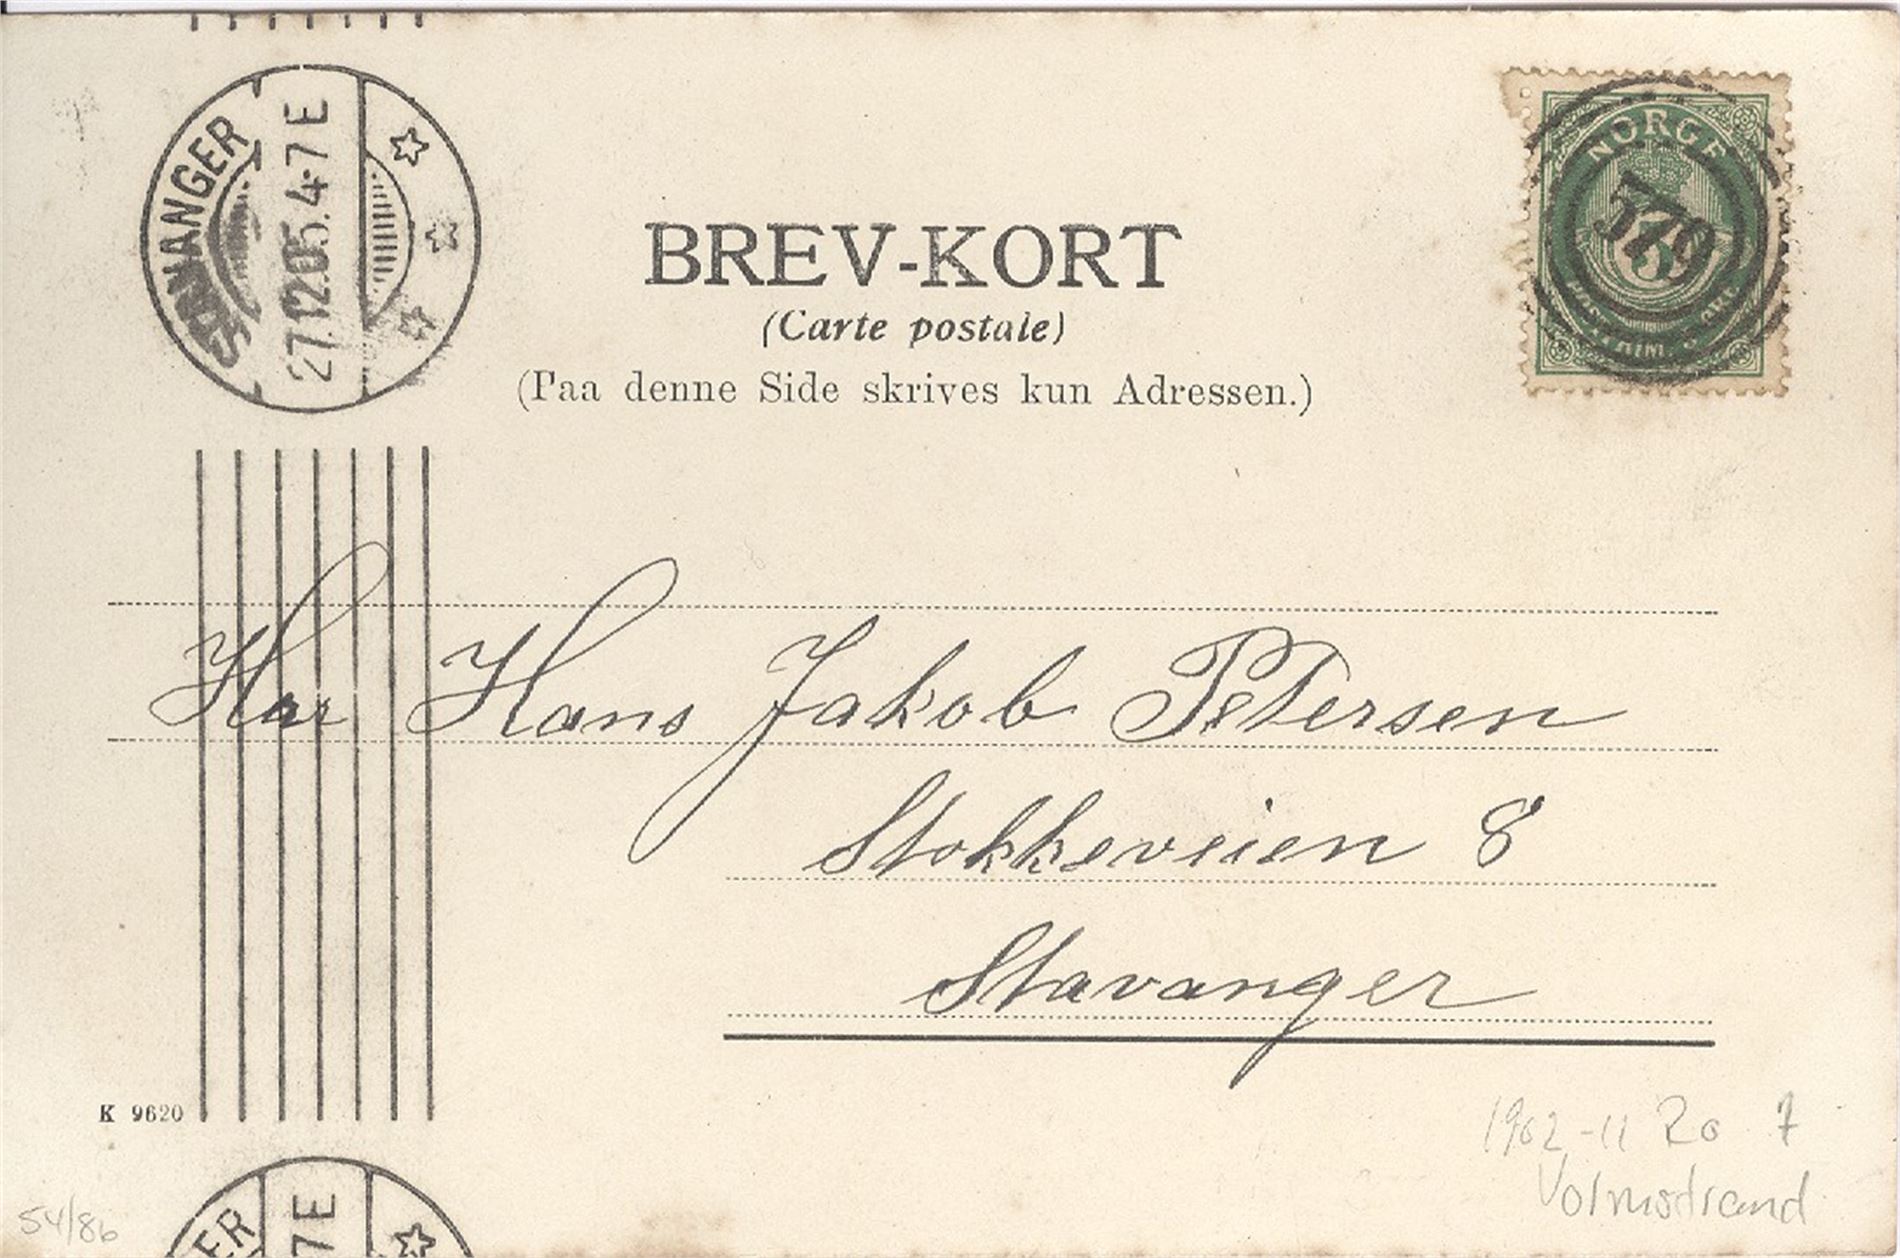 STAVANGER
27.12.05.4-7 E
NORGE
5
POSTFRIM. 5 ØRE
379
BREV-KORT
(Carte postale)
(Paa denne Side skrives kun Adressen.)
Har Hans Jakob Petersen
Stokkeveien 8
Stavanger
K 9620
1902-11 Ro 7
Volmestrand
54/86
ER
7 E